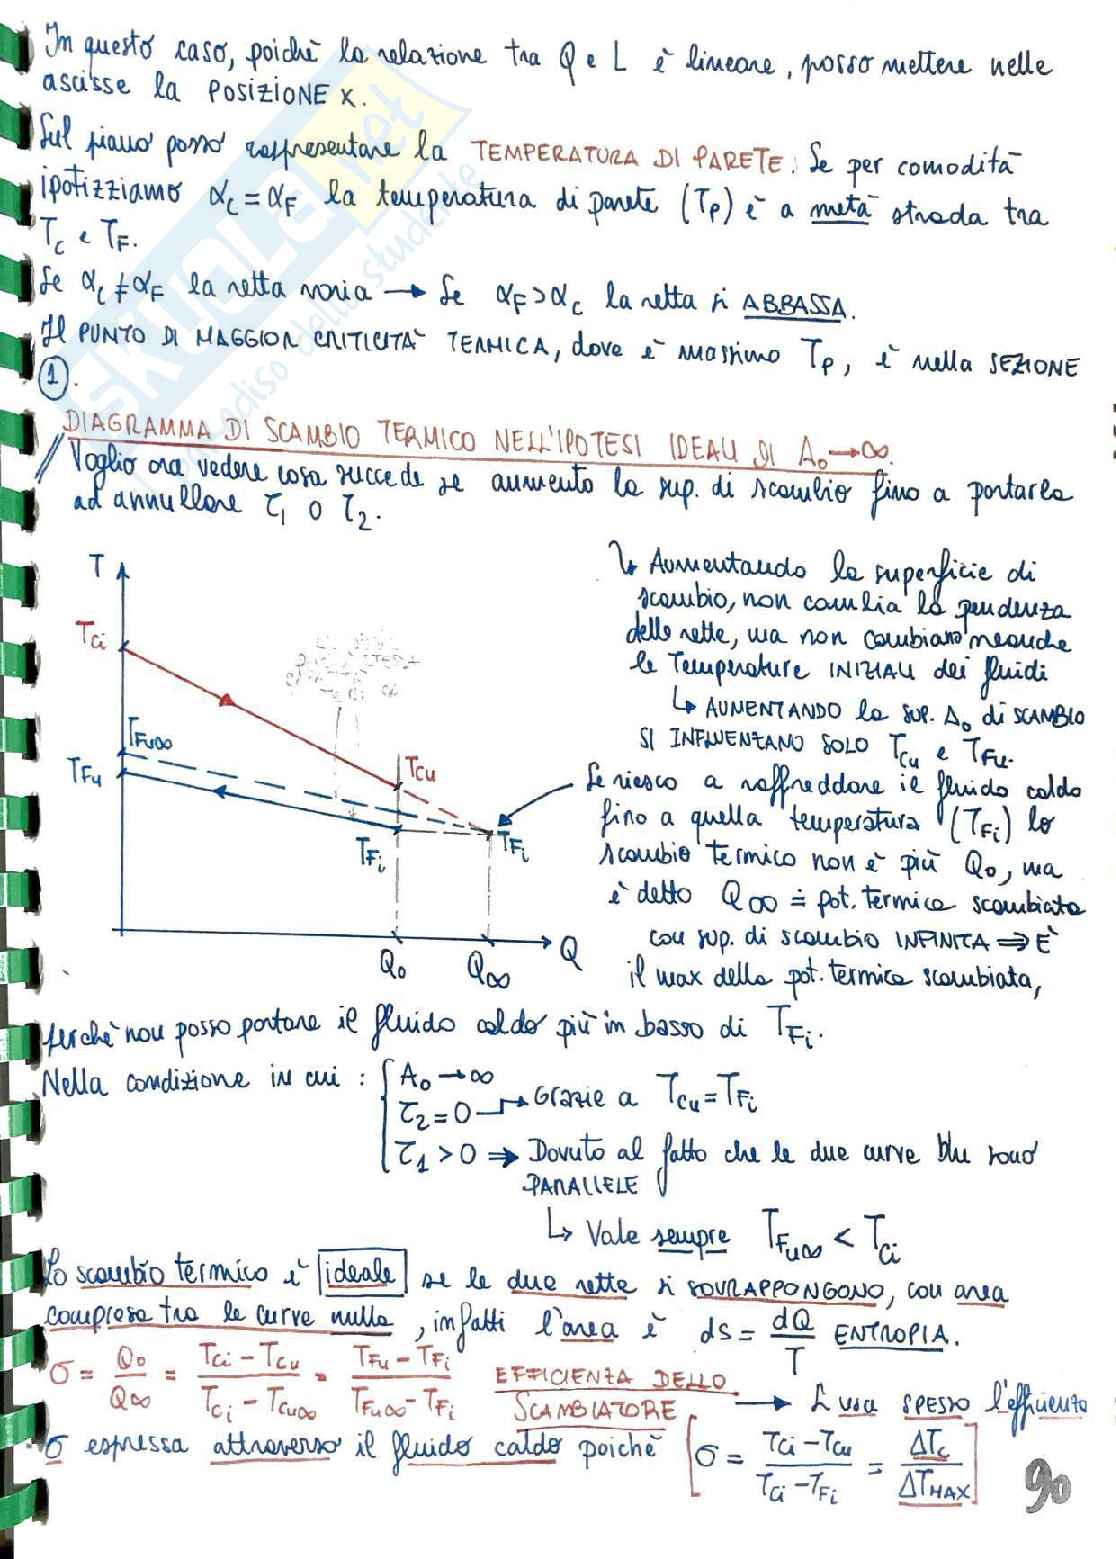 In questo caso, poichè la relazione tra Q e L è lineare, posso mettere nelle
ascisse la POSIZIONE x.
Sul piano posso rappresentare la TEMPERATURA DI PARETE. Se per comodità
ipotizziamo αc = αF la temperatura di parete (Tp) è a metà strada tra
Tc e TF.
Se αc ≠ αF la retta varia → Se αF > αc la retta si ABBASSA.
Il PUNTO DI MAGGIOR CRITICITÀ TERMICA, dove è massimo Tp, è nella SEZIONE
①.
DIAGRAMMA DI SCAMBIO TERMICO NELL'IPOTESI IDEALI DI Ao→∞.
Voglio ora vedere cosa succede se aumento la sup. di scambio fino a portarla
ad annullare τ1 o τ2.
T
Tci
TFu∞
TFu
Tcu
TFi
TFi
Qo
Q∞
Q
↳ Aumentando la superficie di
scambio, non cambia la pendenza
delle rette, ma non cambiano neanche
le Temperature INIZIALI dei fluidi
↳ AUMENTANDO la sup. Ao di SCAMBIO
SI INFLUENZANO SOLO Tcu e TFu.
Se riesco a raffreddare il fluido caldo
fino a quella temperatura (TFi) lo
scambio termico non è più Qo, ma
è detto Q∞ ≐ pot. termica scambiata
con sup. di scambio INFINITA ⇒ È
il max della pot. termica scambiata,
perchè non posso portare il fluido caldo più in basso di TFi.
Nella condizione in cui : { Ao → ∞
τ2 = 0 → Grazie a Tcu = TFi
τ1 > 0 ⇒ Dovuto al fatto che le due curve blu sono
PARALLELE
↳ Vale sempre TFu∞ < Tci
Lo scambio termico è ideale se le due rette si SOVRAPPONGONO, con area
compresa tra le curve nulla, infatti l'area è dS = dQ/T ENTROPIA.
σ = Qo/Q∞ = (Tci - Tcu)/(Tci - Tcu∞) = (TFu - TFi)/(TFu∞ - TFi) EFFICIENZA DELLO SCAMBIATORE → Si usa SPESSO l'efficienza
σ espressa attraverso il fluido caldo poichè [σ = (Tci - Tcu)/(Tci - TFi) = ΔTc/ΔTMAX]
90
skuola.net
paradiso dello studente